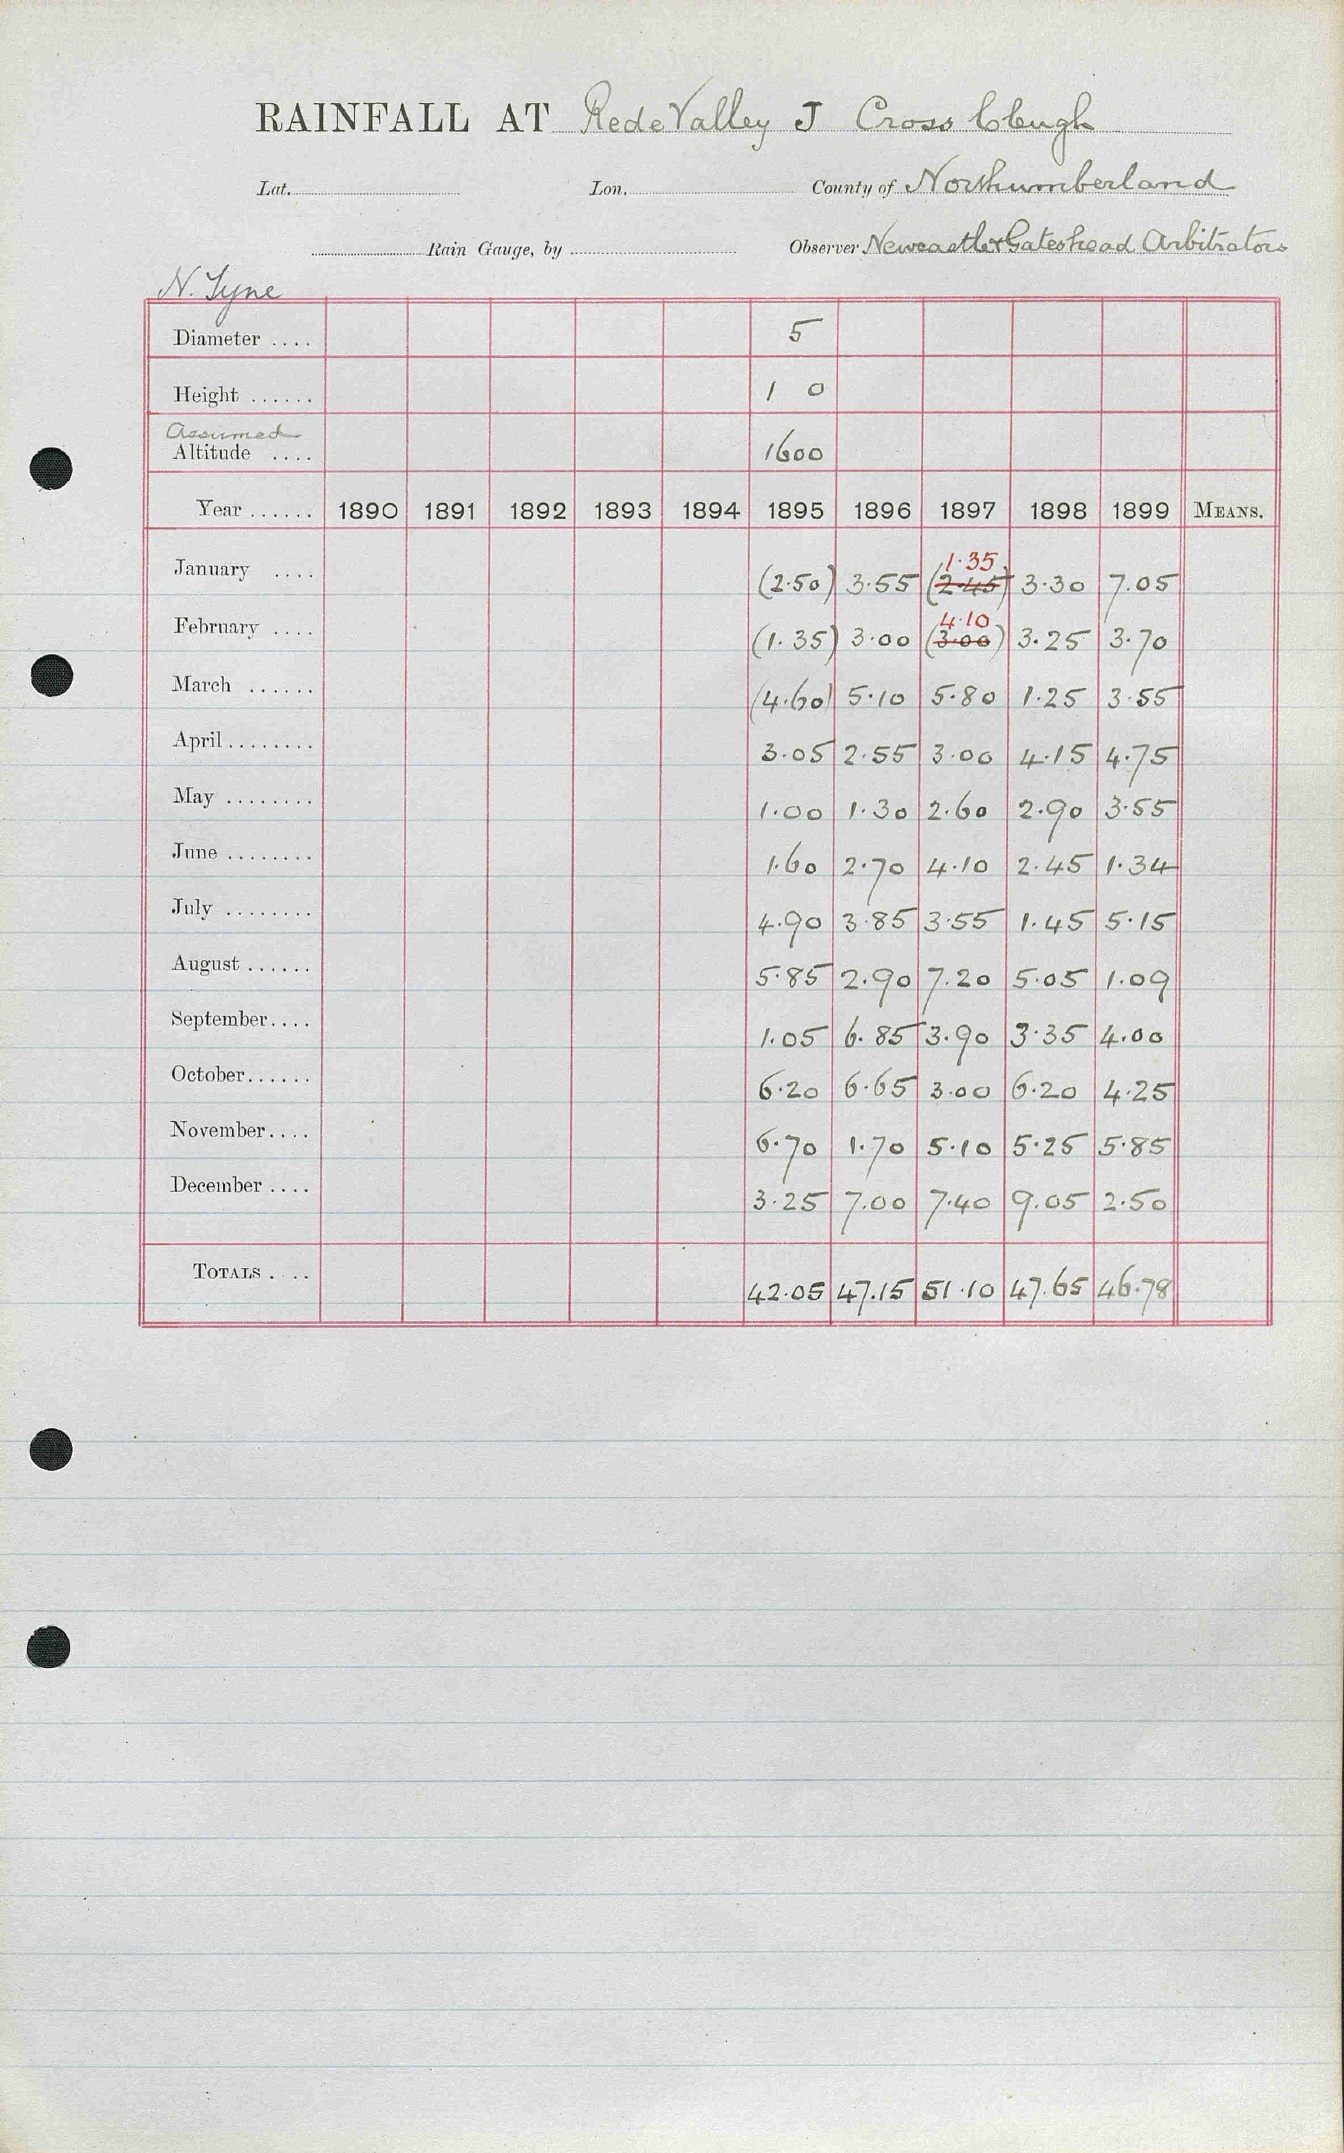 RAINFALL AT Rede Valley J Cross Cleugh
Lat. Lon. County of Northumberland
Rain Gauge, by Observer Newcastle & Gateshead Arbitrators
N. Tyne
Diameter .... 5
Height ...... 1 0
Assumed
Altitude .... 1600
Year ...... 1890 1891 1892 1893 1894 1895 1896 1897 1898 1899 MEANS.
1.35
January .... (2.50) 3.55 (2.45) 3.30 7.05
4.10
February .... (1.35) 3.00 (3.00) 3.25 3.70
March ...... (4.60) 5.10 5.80 1.25 3.55
April ........ 3.05 2.55 3.00 4.15 4.75
May ........ 1.00 1.30 2.60 2.90 3.55
June ........ 1.60 2.70 4.10 2.45 1.34
July ........ 4.90 3.85 3.55 1.45 5.15
August ...... 5.85 2.90 7.20 5.05 1.09
September.... 1.05 6.85 3.90 3.35 4.00
October...... 6.20 6.65 3.00 6.20 4.25
November.... 6.70 1.70 5.10 5.25 5.85
December .... 3.25 7.00 7.40 9.05 2.50
TOTALS .... 42.05 47.15 51.10 47.65 46.78